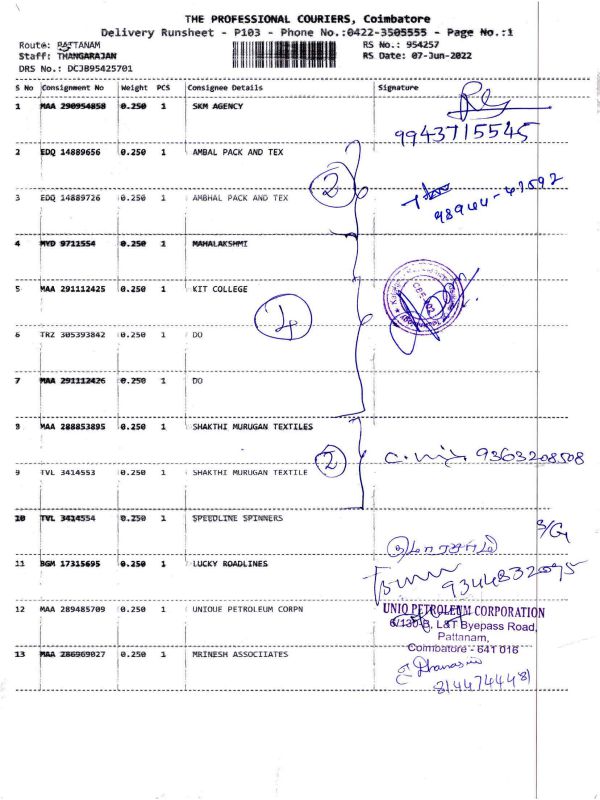 THE PROFESSIONAL COURIERS, Coimbatore
Delivery Runsheet - P103 - Phone No.:0422-3505555 - Page No.:1
Route: PATTANAM RS No.: 954257
Staff: THANGARAJAN RS Date: 07-Jun-2022
DRS No.: DCJB95425701
S No Consignment No Weight PCS Consignee Details Signature
1 MAA 290954858 0.250 1 SKM AGENCY
9943715545
2 EDQ 14889656 0.250 1 AMBAL PACK AND TEX
2
3 EDQ 14889726 0.250 1 AMBHAL PACK AND TEX
4 MYD 9712554 0.250 1 MAHALAKSHMI
5 MAA 291112425 0.250 1 KIT COLLEGE
4
6 TRZ 305393842 0.250 1 DO
7 MAA 291112426 0.250 1 DO
8 MAA 288853895 0.250 1 SHAKTHI MURUGAN TEXTILES
2 9363208508
9 TVL 3414553 0.250 1 SHAKTHI MURUGAN TEXTILE
10 TVL 3414554 0.250 1 SPEEDLINE SPINNERS
11 BGM 17315695 0.250 1 LUCKY ROADLINES
9344832075
12 MAA 289485709 0.250 1 UNIOUE PETROLEUM CORPN
UNIQ PETROLEUM CORPORATION
6/130-B, L&T Byepass Road,
Pattanam,
Coimbatore - 641 016
13 MAA 286969027 0.250 1 MRINESH ASSOCIIATES
8144744481